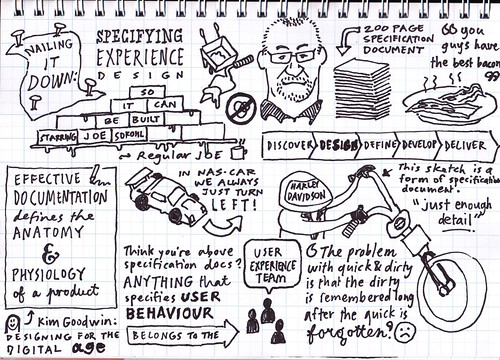 NAILING
IT
DOWN:
SPECIFYING
EXPERIENCE
DESIGN
SO
IT CAN
BE BUILT
STARRING JOE SOKOHL
→ Regular JOE
200 PAGE
SPECIFICATION
DOCUMENT
“you
guys have
the best bacon”
DISCOVER DESIGN DEFINE DEVELOP DELIVER
EFFECTIVE
DOCUMENTATION
defines the
ANATOMY
&
PHYSIOLOGY
of a product
Kim Goodwin:
DESIGNING FOR THE
DIGITAL age
IN NAS-CAR
WE ALWAYS
JUST TURN
LEFT!
Think you're above
specification docs?
ANYTHING that
specifies USER
BEHAVIOUR
BELONGS TO THE
USER
EXPERIENCE
TEAM
HARLEY
DAVIDSON
This sketch is a
form of specification
document.
"just enough
detail"
The problem
with quick & dirty
is that the dirty
is remembered long
after the quick is
forgotten?